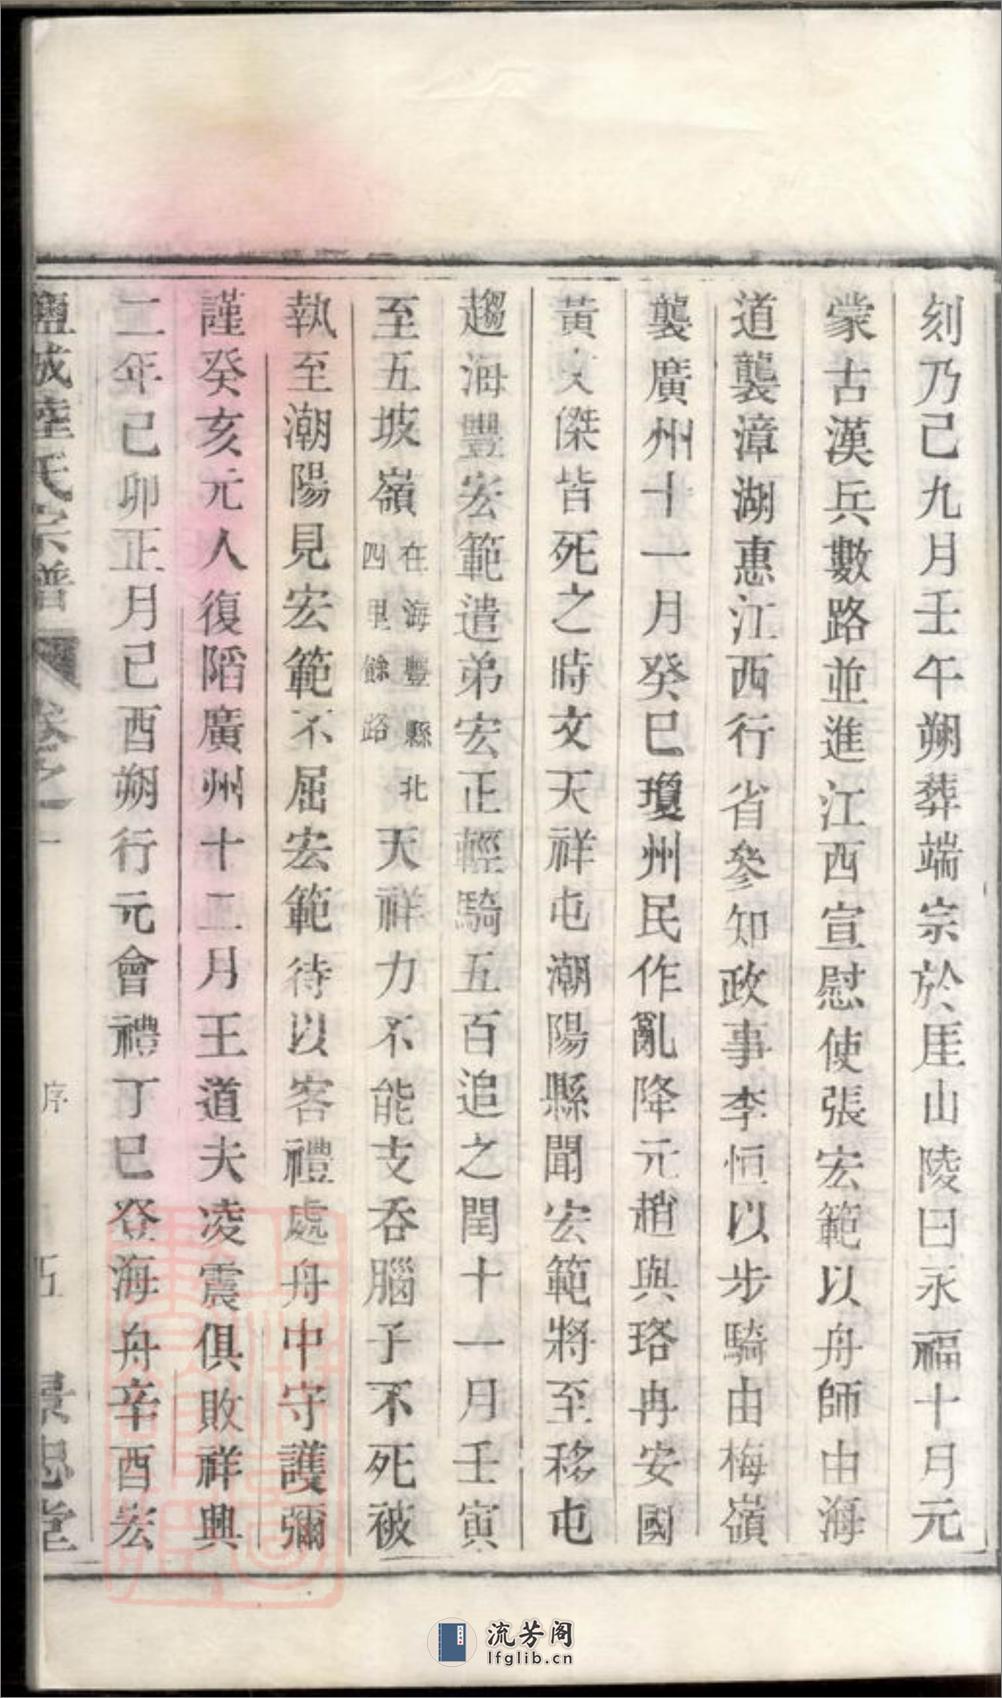 刻乃己九月壬午朔葬端宗於厓山陵曰永福十月元
蒙古漢兵數路並進江西宣慰使張宏範以舟師由海
道襲漳湖惠江西行省參知政事李恒以步騎由梅嶺
襲廣州十一月癸巳瓊州民作亂降元趙與珞冉安國
黃文傑皆死之時文天祥屯潮陽縣聞宏範將至移屯
趨海豐宏範遣弟宏正輕騎五百追之閏十一月壬寅
至五坡嶺在海豐縣北四里餘路天祥力不能支吞腦子不死被
執至潮陽見宏範不屈宏範待以客禮處舟中守護彌
謹癸亥元人復陷廣州十二月王道夫凌震俱敗祥興
二年己卯正月己酉朔行元會禮丁巳登海舟辛酉宏
鹽城陸氏宗譜 卷之一 序 五 景忠堂
流芳阁
lfglib.cn